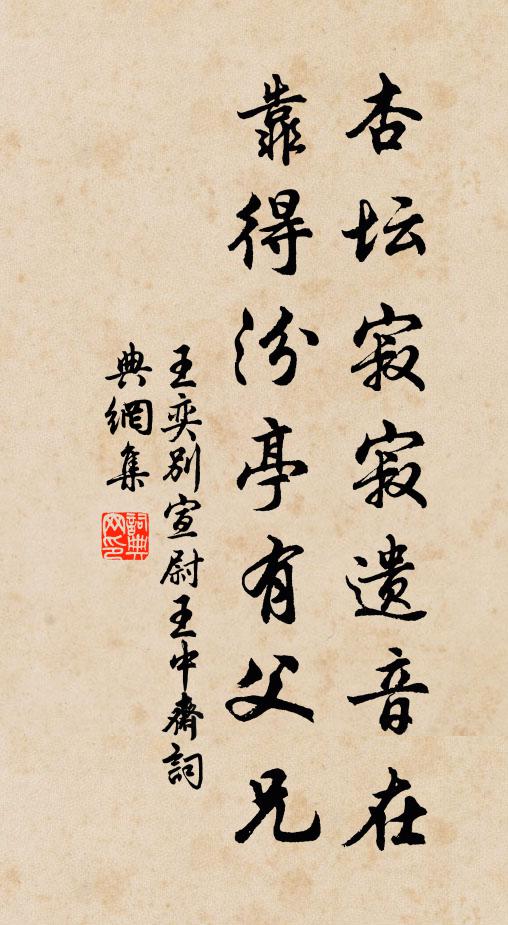 杏坛寂寂遗音在
靠得汾亭有父兄
王奕别宣尉王中齋詞
典網集
詞典网印